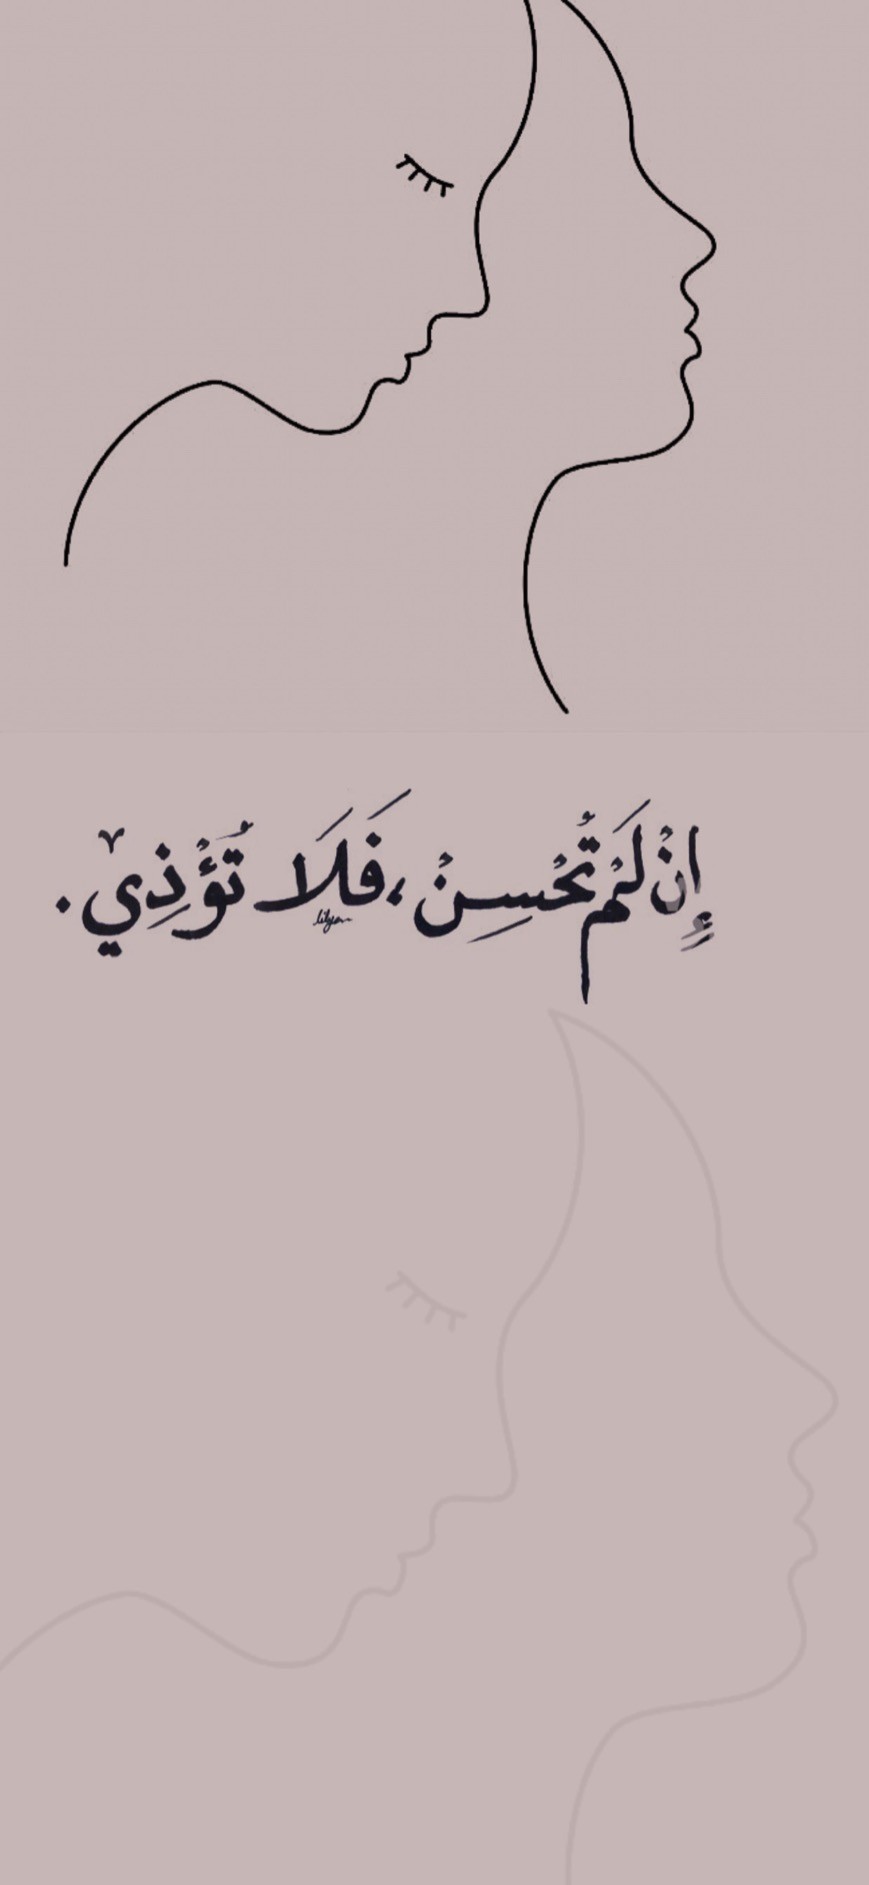 إِنْ لَمْ تُحْسِنْ، فَلَا تُؤْذِي.
lilyan